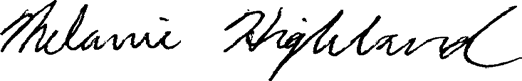 Melanie Highland